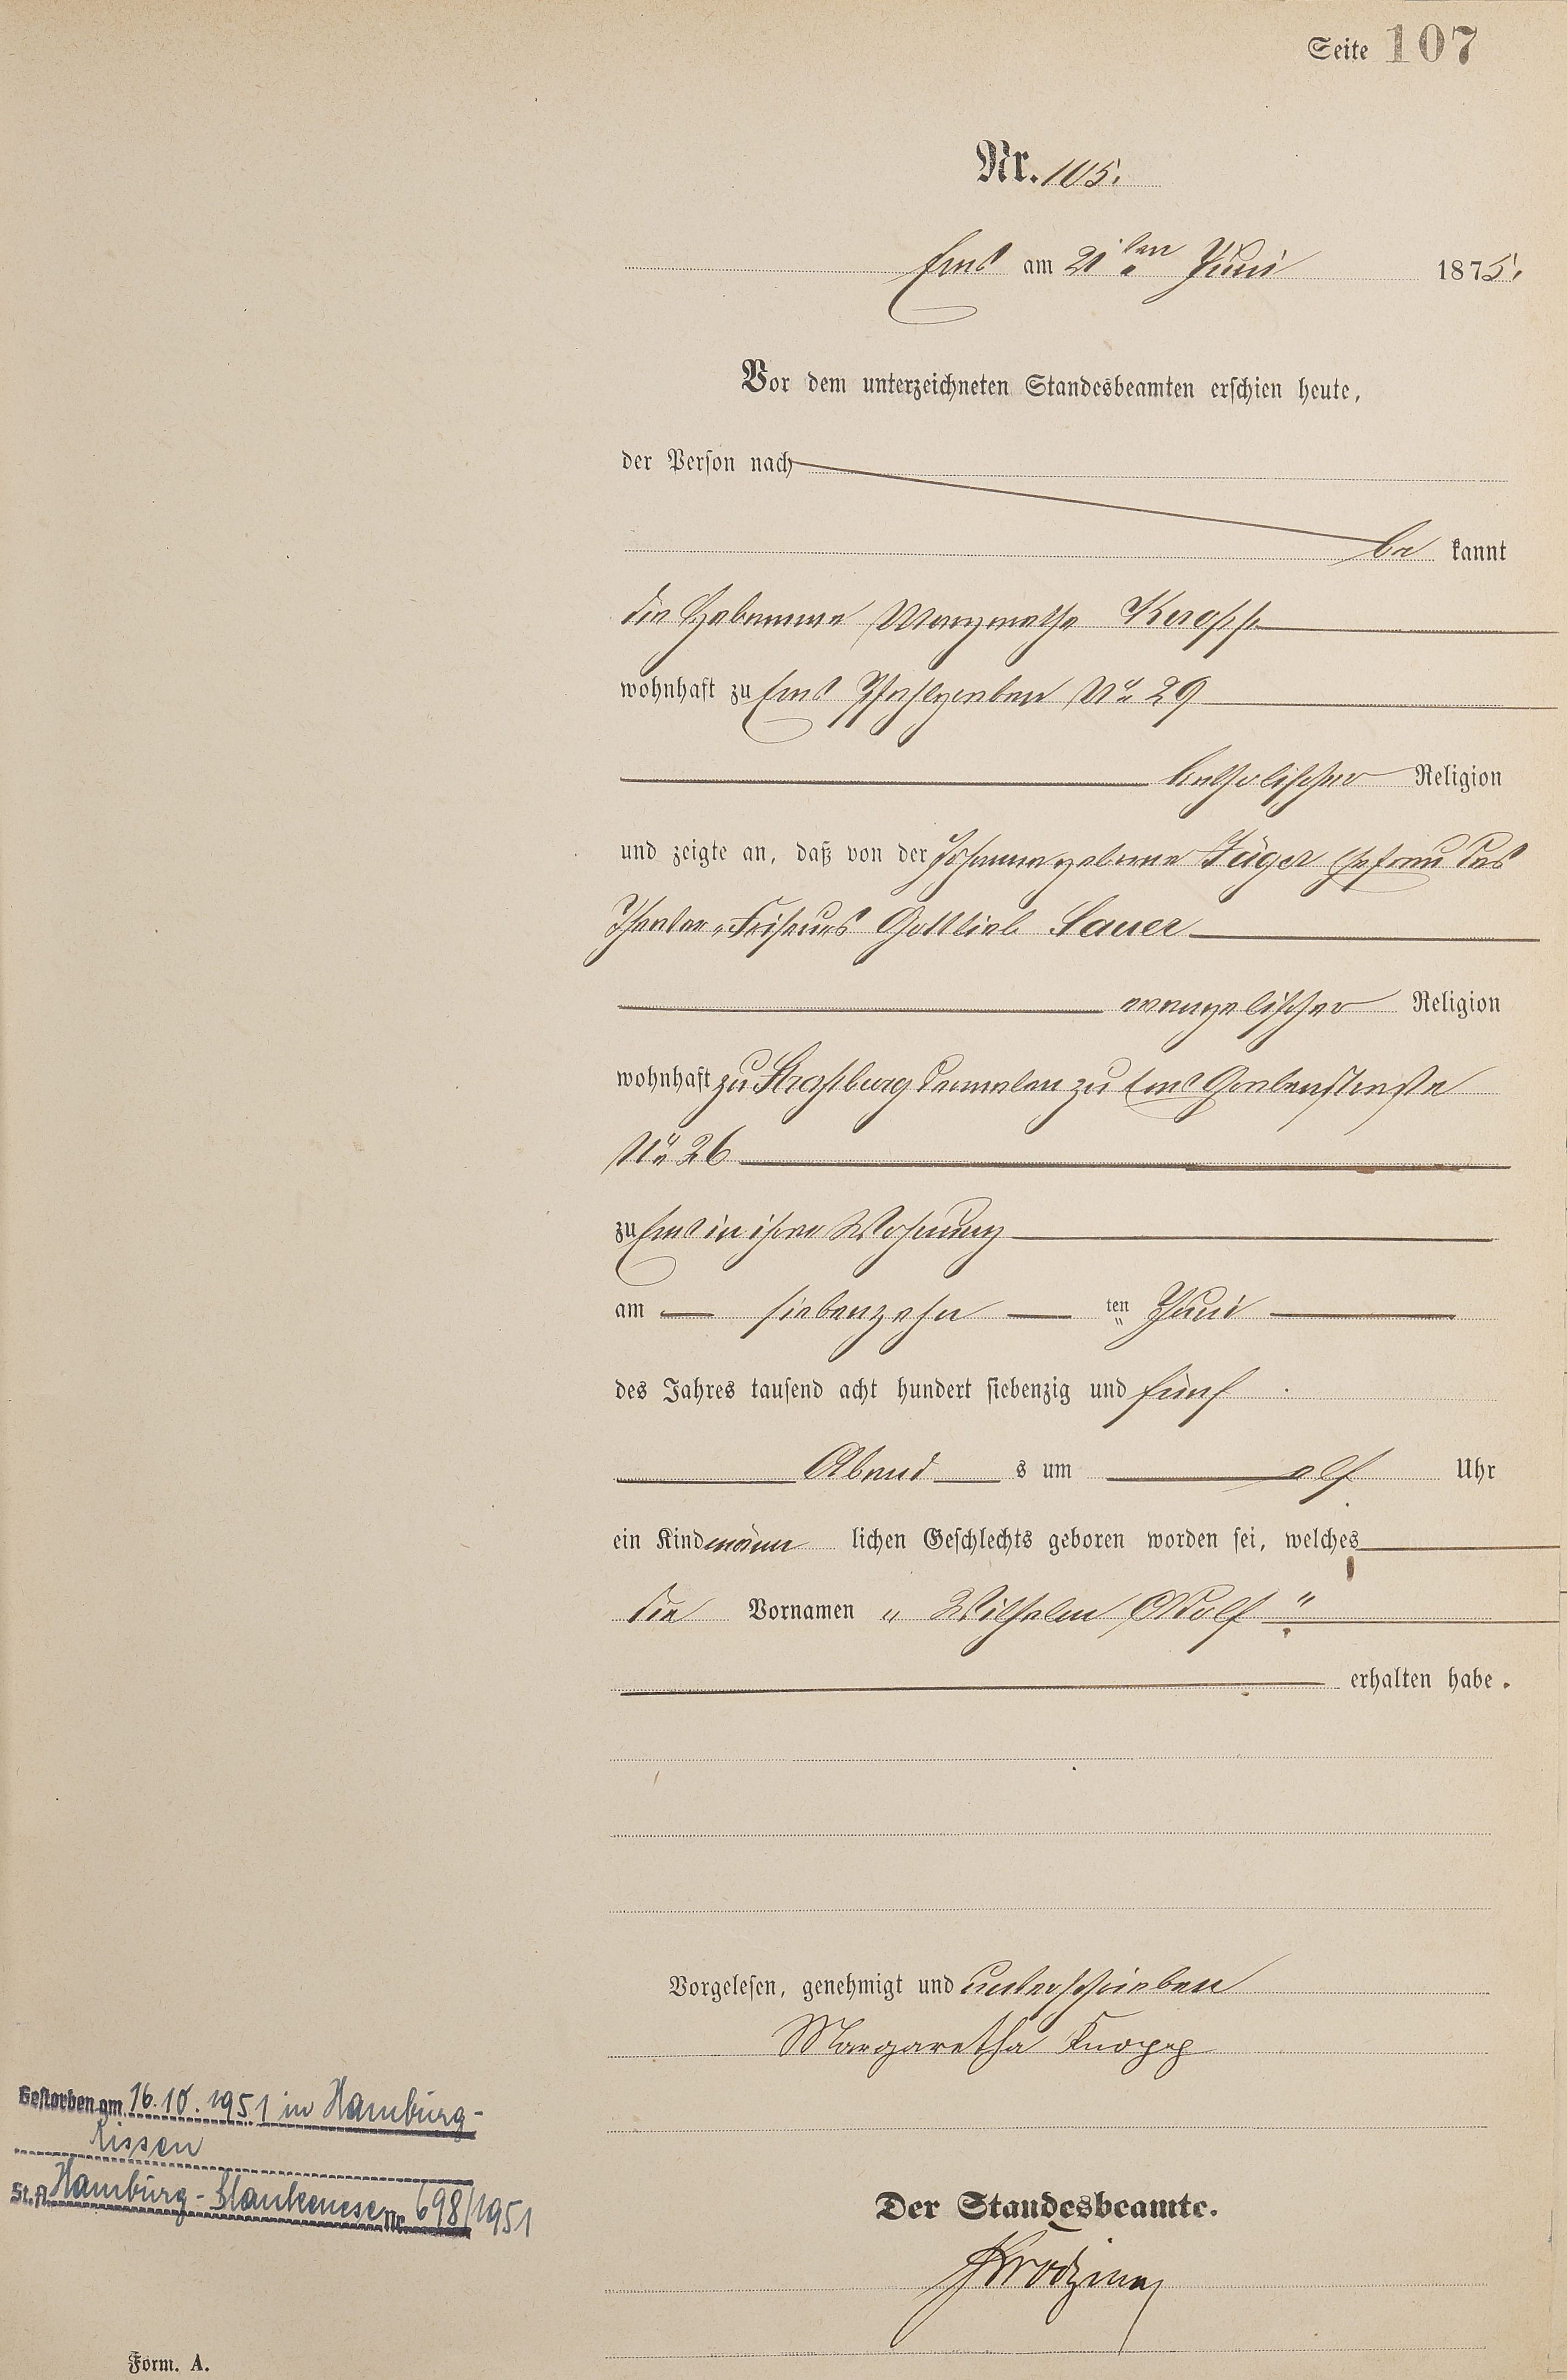 Seite 107
Nr. 105.
Ems am 21ten Juni 1875.
Vor dem unterzeichneten Standesbeamten erschien heute,
der Person nach
be kannt
die Hebamme Margaretha Knopp
wohnhaft zu Ems Pfahlgraben No 29
katholischer Religion
und zeigte an, daß von der Johanna geborne Jäger Ehefrau des
Theater-Friseurs Gottlieb Sauer
evangelischer Religion
wohnhaft zu Straßburg dermalen zu Ems Grabenstraße
No 26
zu Ems in ihrer Wohnung
am siebenzehn ten Juni
des Jahres tausend acht hundert siebenzig und fünf
Abend s um elf Uhr
ein Kind männ lichen Geschlechts geboren worden sei, welches
die Vornamen „ Wilhelm Adolf "
erhalten habe.
Vorgelesen, genehmigt und unterschrieben
Margaretha Knopp
Gestorben am 16.10.1951 in Hamburg-
Rissen
St.A. Hamburg-Blankenese Nr. 698/1951
Der Standesbeamte.
Form. A.